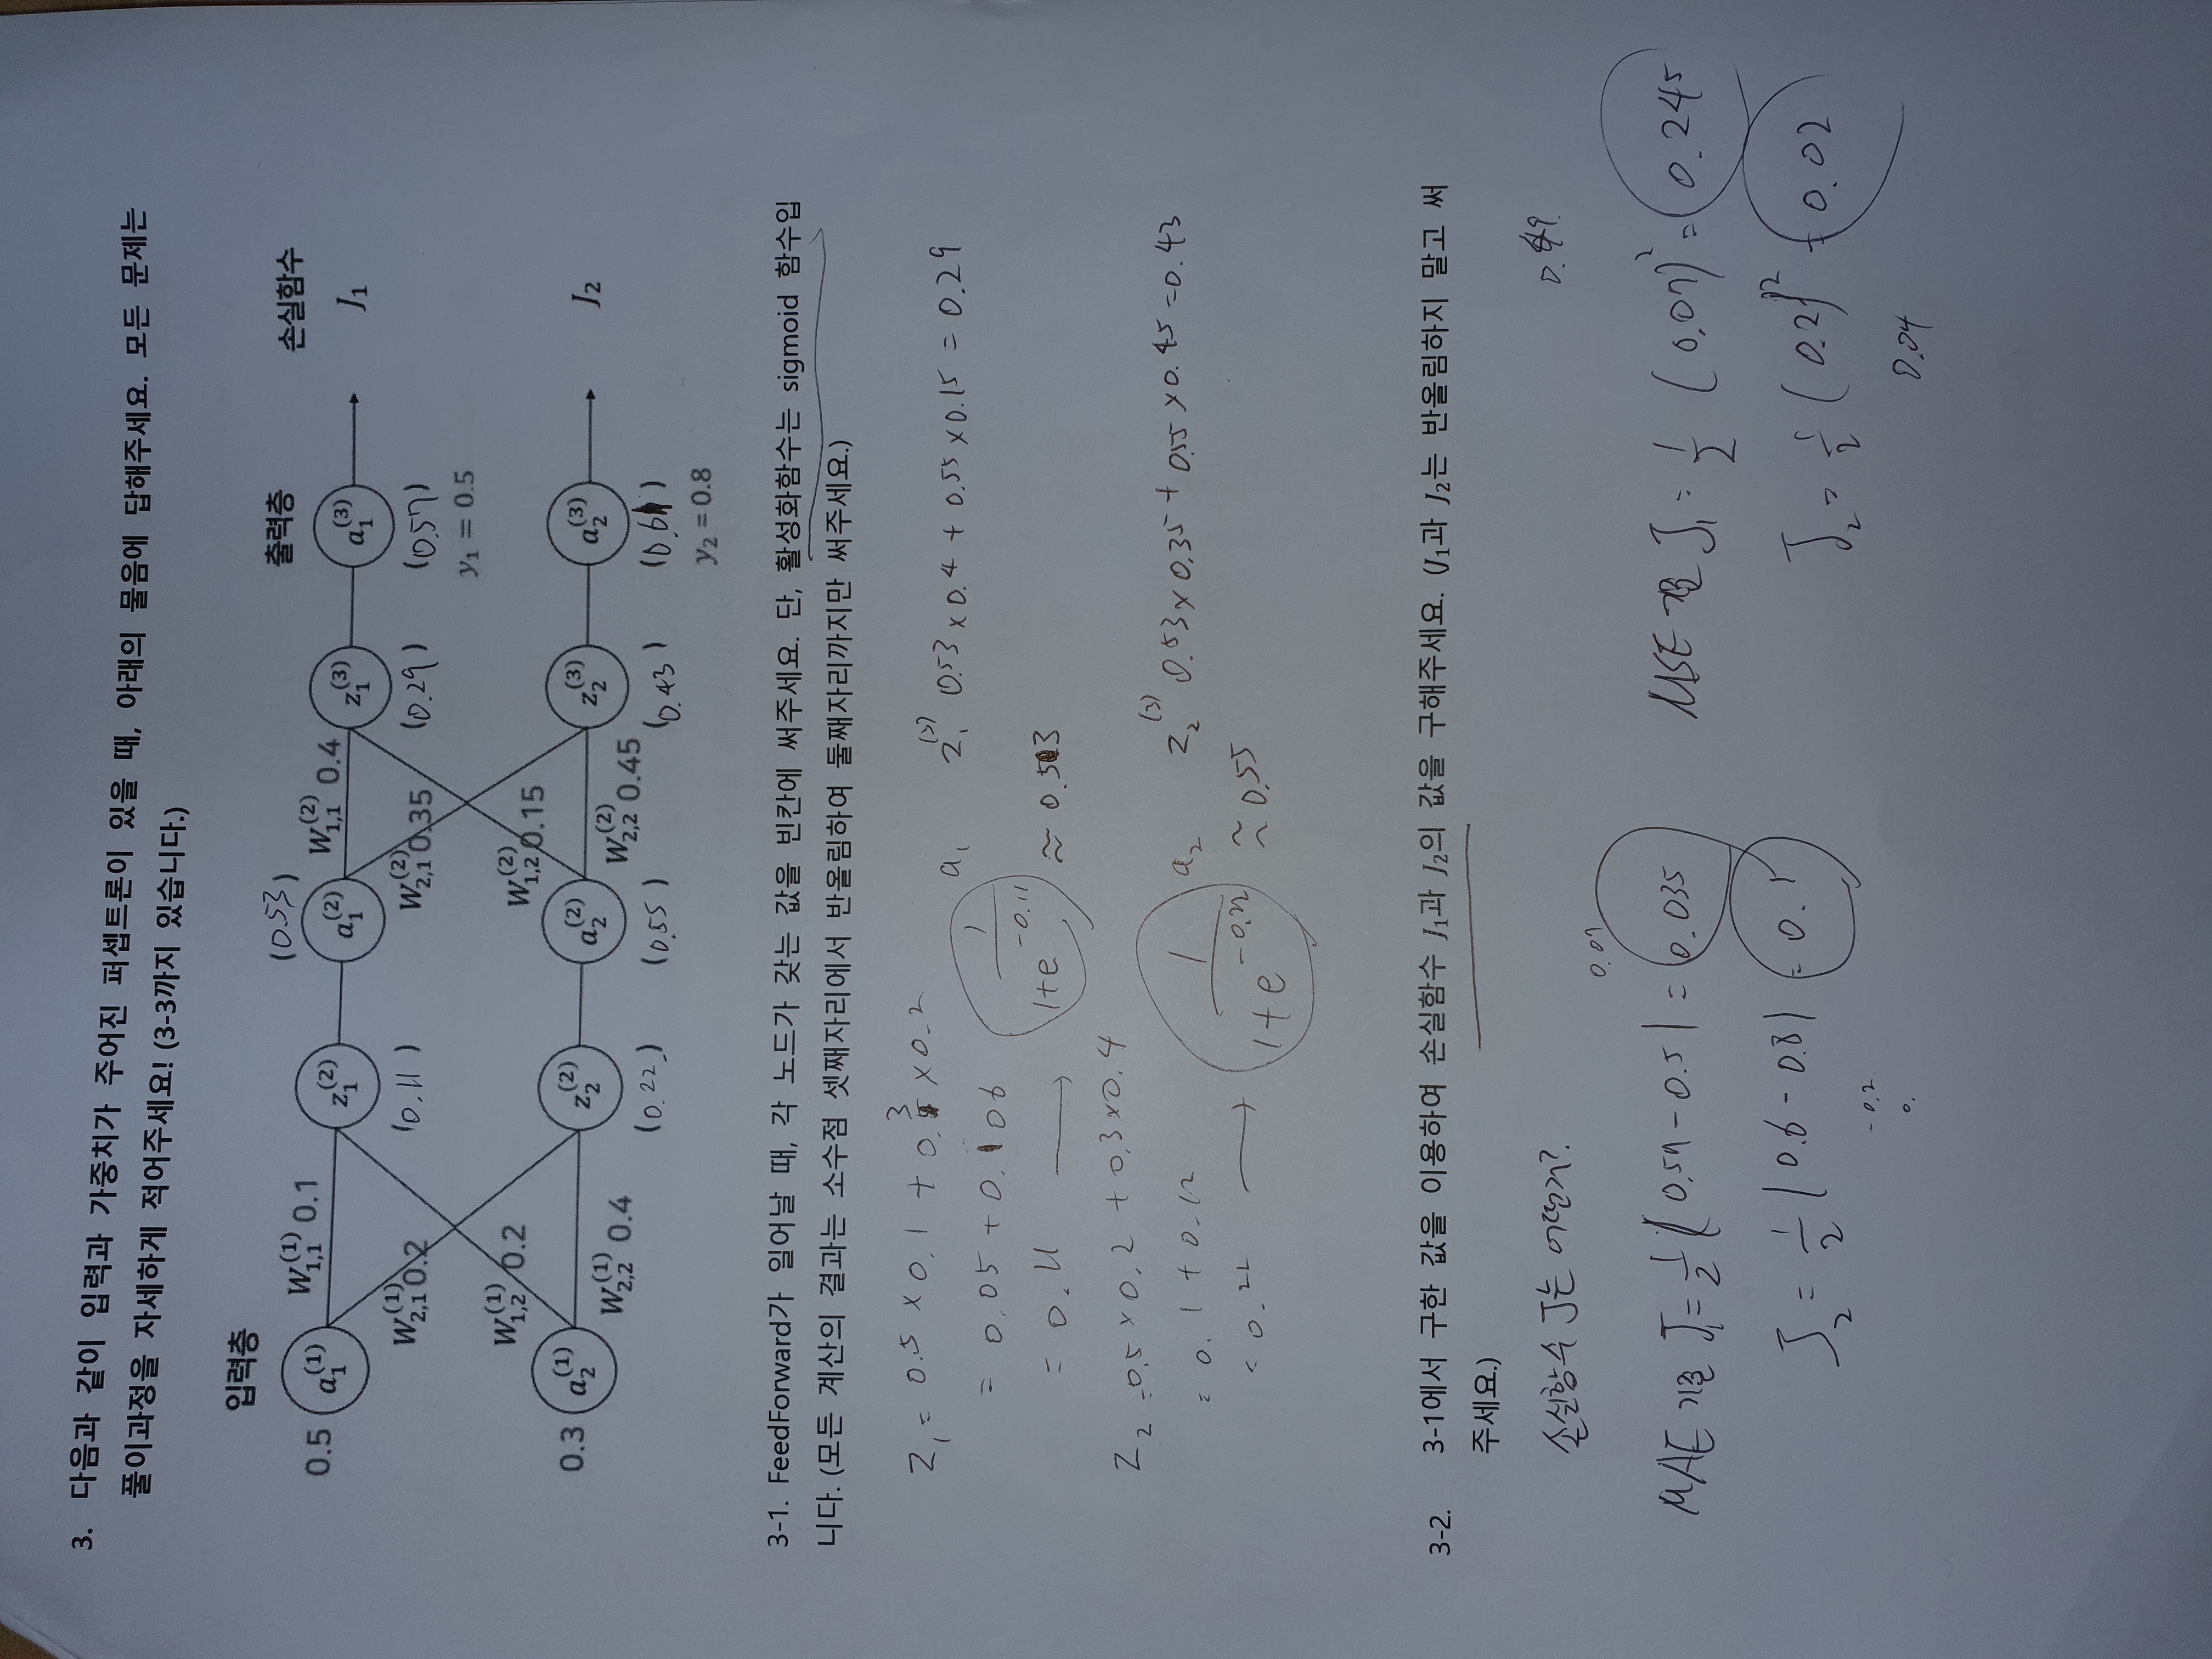 3. 다음과 같이 입력과 가중치가 주어진 퍼셉트론이 있을 때, 아래의 물음에 답해주세요. 모든 문제는
풀이과정을 자세하게 적어주세요! (3-3까지 있습니다.)
입력층
(0.53)
출력층
손실함수
0.5 a₁⁽¹⁾ W₁,₁⁽¹⁾ 0.1 z₁⁽²⁾ a₁⁽²⁾ W₁,₁⁽²⁾ 0.4 z₁⁽³⁾ a₁⁽³⁾ J₁
W₂,₁⁽¹⁾ 0.2 (0.11) W₂,₁⁽²⁾ 0.35 (0.29) (0.57)
y₁ = 0.5
W₁,₂⁽¹⁾ 0.2 W₁,₂⁽²⁾ 0.15
0.3 a₂⁽¹⁾ z₂⁽²⁾ a₂⁽²⁾ z₂⁽³⁾ a₂⁽³⁾ J₂
W₂,₂⁽¹⁾ 0.4 W₂,₂⁽²⁾ 0.45
(0.22) (0.55) (0.43) (0.6)
y₂ = 0.8
3-1. FeedForward가 일어날 때, 각 노드가 갖는 값을 빈칸에 써주세요. 단, 활성화함수는 sigmoid 함수입
니다. (모든 계산의 결과는 소수점 셋째자리에서 반올림하여 둘째자리까지만 써주세요.)
Z₁ = 0.5 × 0.1 + 0.3 × 0.2
= 0.05 + 0.06
= 0.11 → 1/(1+e^-0.11) a₁ ≈ 0.53
z₁⁽³⁾ 0.53 × 0.4 + 0.55 × 0.15 = 0.29
Z₂ = 0.5 × 0.2 + 0.3 × 0.4
= 0.1 + 0.12
= 0.22 → 1/(1+e^-0.22) a₂ ≈ 0.55
z₂⁽³⁾ 0.53 × 0.35 + 0.55 × 0.45 = 0.43
3-2. 3-1에서 구한 값을 이용하여 손실함수 J₁과 J₂의 값을 구해주세요. (J₁과 J₂는 반올림하지 말고 써
주세요.)
손실함수 J는 어떤거?
0.07
MAE 기준 J₁ = 1/2 | 0.57 - 0.5 | = 0.035
MSE 기준 J₁ = 1/2 (0.07)² = 0.245
J₂ = 1/2 | 0.6 - 0.8 | = 0.1
J₂ = 1/2 (0.2)² = 0.02
- 0.2
0.
0.04